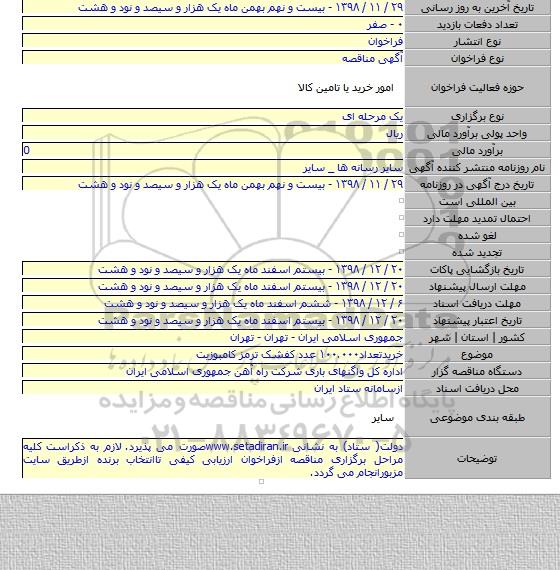 تاریخ آخرین به روز رسانی ۲۹ / ۱۱ / ۱۳۹۸ - بیست و نهم بهمن ماه یک هزار و سیصد و نود و هشت
تعداد دفعات بازدید ۰ - صفر
نوع انتشار فراخوان
نوع فراخوان آگهی مناقصه
حوزه فعالیت فراخوان امور خرید یا تامین کالا
نوع برگزاری یک مرحله ای
واحد پولی برآورد مالی ریال
برآورد مالی 0
نام روزنامه منتشر کننده آگهی سایر رسانه ها _ سایر
تاریخ درج آگهی در روزنامه ۲۹ / ۱۱ / ۱۳۹۸ - بیست و نهم بهمن ماه یک هزار و سیصد و نود و هشت
بین المللی است
احتمال تمدید مهلت دارد
لغو شده
تجدید شده
تاریخ بازگشایی پاکات ۲۰ / ۱۲ / ۱۳۹۸ - بیستم اسفند ماه یک هزار و سیصد و نود و هشت
مهلت ارسال پیشنهاد ۲۰ / ۱۲ / ۱۳۹۸ - بیستم اسفند ماه یک هزار و سیصد و نود و هشت
مهلت دریافت اسناد ۶ / ۱۲ / ۱۳۹۸ - ششم اسفند ماه یک هزار و سیصد و نود و هشت
تاریخ اعتبار پیشنهاد ۲۰ / ۱۲ / ۱۳۹۸ - بیستم اسفند ماه یک هزار و سیصد و نود و هشت
کشور | استان | شهر جمهوری اسلامی ایران - تهران - تهران
موضوع خریدتعداد۱۰۰.۰۰۰ عدد کفشک ترمز کامپوزیت
دستگاه مناقصه گزار اداره کل واگنهای باری شرکت راه آهن جمهوری اسلامی ایران
محل دریافت اسناد ازسامانه ستاد ایران
پایگاه اطلاع رسانی مناقصه و مزایده
طبقه بندی موضوعی سایر
۰۲۱-۸۸۳۴۹۶۷۰-۵
توضیحات دولت( ستاد) به نشانی www.setadiran.irصورت می پذیرد. لازم به ذکراست کلیه
مراحل برگزاری مناقصه ازفراخوان ارزیابی کیفی تاانتخاب برنده ازطریق سایت
مزبورانجام می گردد.